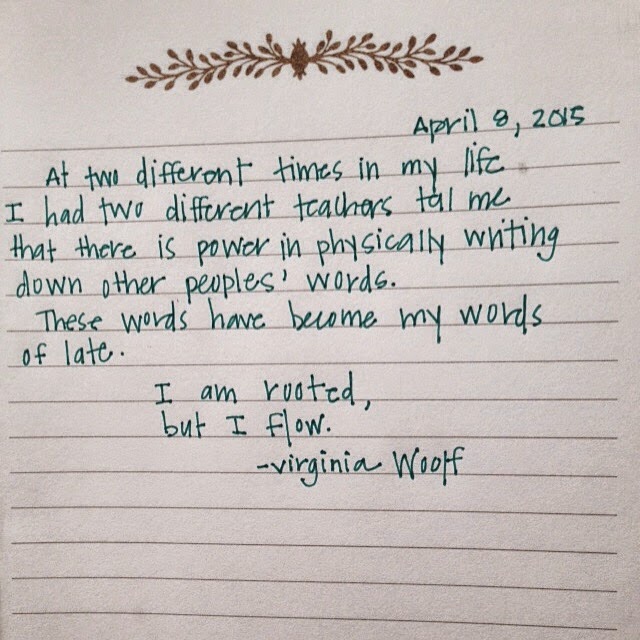 April 8, 2015
At two different times in my life
I had two different teachers tell me
that there is power in physically writing
down other peoples' words.
These words have become my words
of late.
I am rooted,
but I flow.
-virginia Woolf